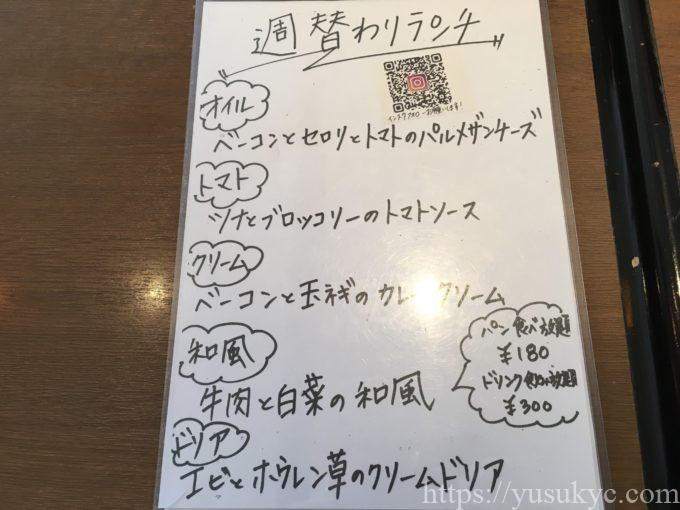 週替わりランチ
インスタフォローお願いします!
オイル
ベーコンとセロリとトマトのパルメザンチーズ
トマト
ツナとブロッコリーのトマトソース
クリーム
ベーコンと玉ネギのカレークリーム
パン食べ放題
¥180
ドリンク飲み放題
¥300
和風
牛肉と白菜の和風
ドリア
エビとホウレン草のクリームドリア
https://yusukyc.com